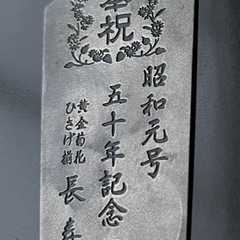 奉祝
昭和元号
五十年記念
黄金菊花
ひさげ揃
長寿